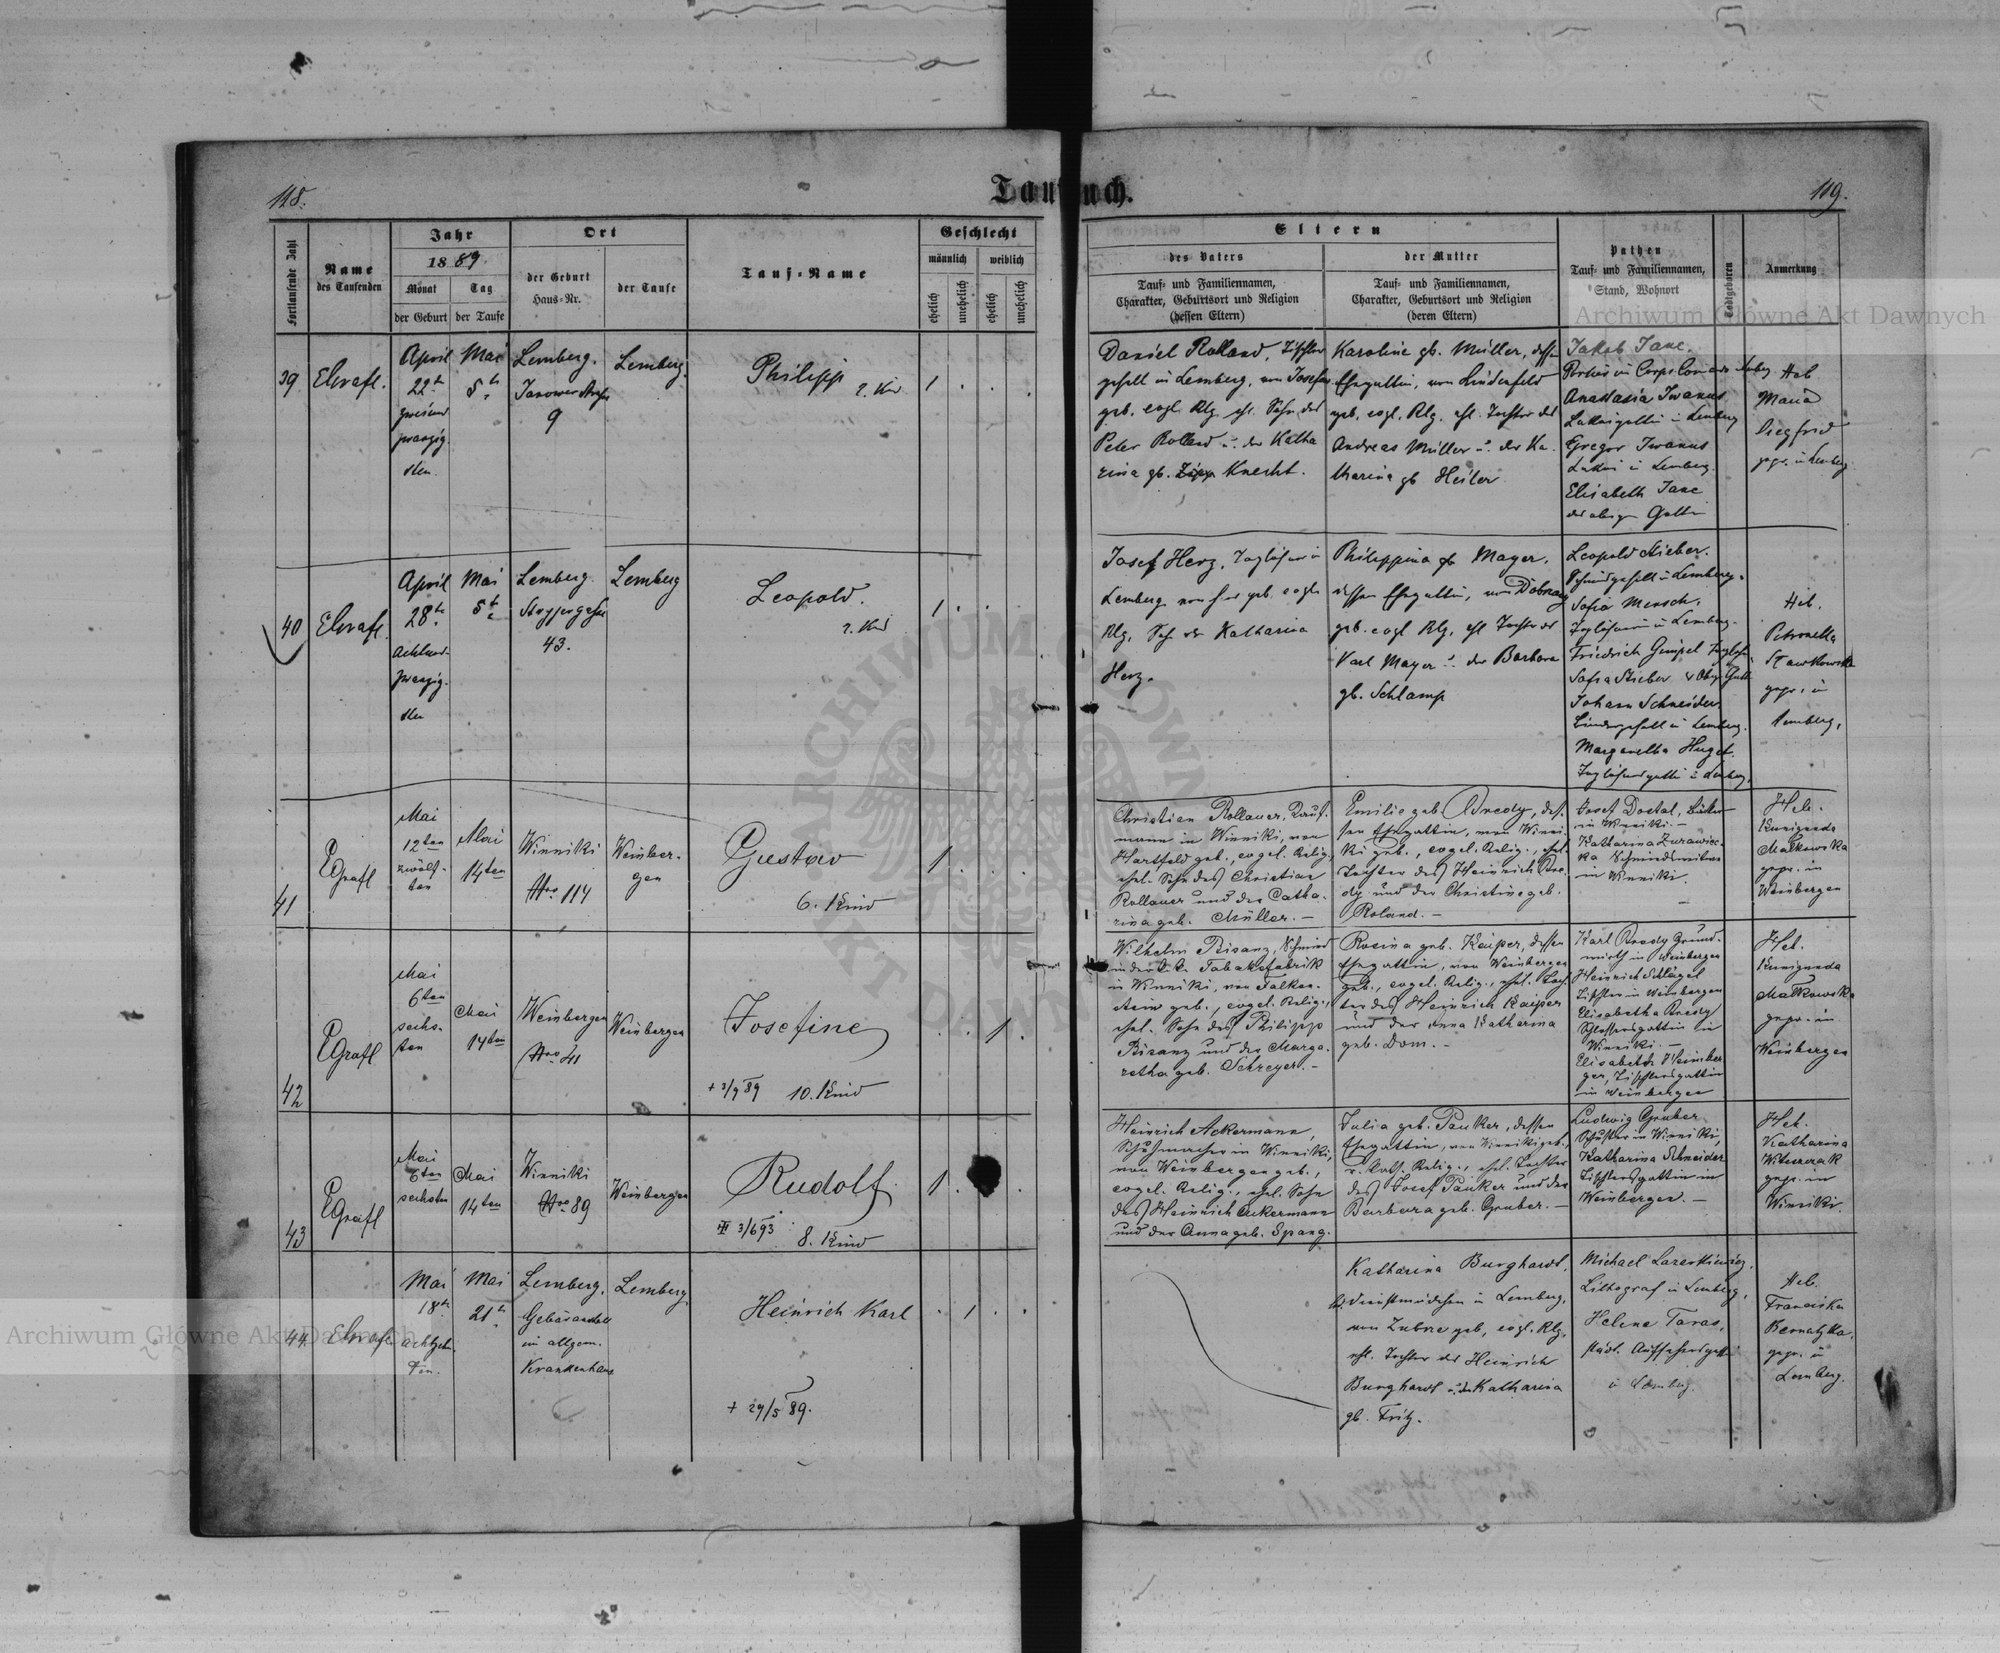 118.
Taufbuch.
119.
Fortlaufende Zahl
Name
des Taufenden
Jahr
1889.
Monat
Tag
der Geburt
der Taufe
Ort
der Geburt
Haus-Nr.
der Taufe
Tauf-Name
Geschlecht
männlich
weiblich
ehelich
unehelich
ehelich
unehelich
Eltern
des Vaters
Tauf- und Familiennamen,
Charakter, Geburtsort und Religion
(dessen Eltern)
der Mutter
Tauf- und Familiennamen,
Charakter, Geburtsort und Religion
(deren Eltern)
Pathen
Tauf- und Familiennamen,
Stand, Wohnort
Todtgeboren
Anmerkung
39
April
22te
zweiund
zwanzig
sten
Mai
5te
Lemberg.
9
Lemberg.
Philipp
2. Kind
1
Daniel Rolland, Tischler
gesell in Lemberg, von Josefow
geb. evgl. Rlg. ehl. Sohn des
Peter Rolland u. der Katha
rina gb. Knecht.
Karoline gb. Müller, dessen
Ehegattin, von Lindenfeld
geb. evgl. Rlg. ehl. Tochter des
Andreas Müller u. der Ka
tharina gb Heiler
Jakob Janc.
Anastasia Iwanus
Gregor Iwanus
in Lemberg.
Elisabeth Janc
Gattin
Heb
Maria
Siegfried
gepr. in Lemberg
40
April
28te
achtund-
zwanzig-
sten
Mai
5te
Lemberg.
43.
Lemberg
Leopold.
2. Kind
1
Josef Herz, Taglöhner in
Lemberg von hier geb. evgl.
Rlg. Sohn der Katharina
Herz.
Philippina gb Mayer,
dessen Ehegattin, von
geb. evgl Rlg, ehl Tochter des
Karl Mayer u. der Barbara
gb. Schlamp
Leopold Stieber.
Sofia Mensch,
Friedrich Gimpel
Sofia Stieber
Johann Schneider
in Lemberg.
Margaretha Huget.
Heb.
Petronella
gepr. in
Lemberg,
41
EGrafl
Mai
12ten
zwölf-
ten
Mai
14ten
Winniki
Nro 114
Weinber-
gen
Gustav
6. Kind
1
Christian Rollauer, Kauf-
mann in Winniki, von
Hartfeld geb., evgel. Relig.,
ehel. Sohn des Christian
Rollauer und der Catha-
rina geb. Müller.-
Emilie geb Bredy, des-
sen Ehegattin, von Winni-
ki geb., evgel. Relig., ehel.
Tochter des Heinrich Bre-
dy und der Christine geb.
Roland.-
Josef Dostal,
in Winniki.-
Katharina Zurawiec-
ka Schmiedswitwe
in Winniki.
Heb.
Kunigunda
Malkowska
gepr. in
Weinbergen
42
EGrafl
Mai
6ten
sechs-
ten
Mai
14ten
Weinbergen
Nro 41
Weinbergen
Josefine
+ 2/9 89 10. Kind
1.
Wilhelm Bisanz, Schmied
in der k.k. Tabaksfabrik
in Winniki, von Falken-
stein geb., evgel. Relig.,
ehel. Sohn des Philipp
Bisanz und der Marga-
retha geb. Schreyer.-
Rosina geb. Kaiper, dessen
Ehegattin, von Weinbergen
geb., evgel. Relig., ehel. Toch-
ter des Heinrich Kaiper
und der Anna Katharina
geb. Dom.-
Karl Bredy Grund-
wirth in Weinbergen
Heinrich Schlägel
Tischler in Weinbergen
Elisabetha Bredy
Schlossersgattin in
Winniki.-
Elisabeth Heimber
ger, Tischlersgattin
in Weinbergen
Heb.
Kunigunda
Malkowska
gepr. in
Weinbergen
43
EGrafl
Mai
6ten
sechsten
Mai
14ten
Winniki
Nro 89
Weinbergen
Rudolf
3/6 93 8. Kind
1
Heinrich Ackermann,
Schuhmacher in Winniki,
von Weinbergen geb.,
evgel. Relig., ehel. Sohn
des Heinrich Ackermann
und der Anna geb. Spang.
Julia geb. Pauker, dessen
Ehegattin, von Winniki geb.,
r. kath. Relig., ehel. Tochter
des Josef Pauker und der
Barbara geb. Gruber.-
Ludwig Gruber
Schuster in Winniki,
Katharina Schneider
Tischlersgattin in
Weinbergen.-
Heb.
Katharina
gepr. in
Winniki.
44.
Mai
18te
achtzehn
ten.
Mai
21te
Lemberg,
Gebäranstalt
im allgem.
Krankenhaus
Lemberg
Heinrich Karl
+ 29/5 89.
1
Katharina Burghardt,
Dienstmädchen in Lemberg,
von Zubrze geb, evgl. Rlg,
ehl. Tochter des Heinrich
Burghardt u. der Katharina
gb. Fritz.
Michael Lazarkiewicz,
Lithograf in Lemberg,
Helene Taras,
städt. Aufsehersgattin
in Lemberg.
Heb.
Franciska
Bernatzka,
gepr. in
Lemberg.
Archiwum Główne Akt Dawnych
Archiwum Główne Akt Dawnych
ARCHIWUM GŁÓWNE AKT DAWNYCH